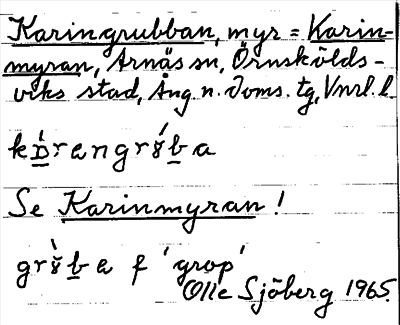 Karingrubban, myr = Karin-
myran, Arnäs sn, Örnskölds-
viks stad, Ång. n. doms. tg, Vnrl. l.
grop'
Se Karinmyran!
f 'grop'
Olle Sjöberg 1965.